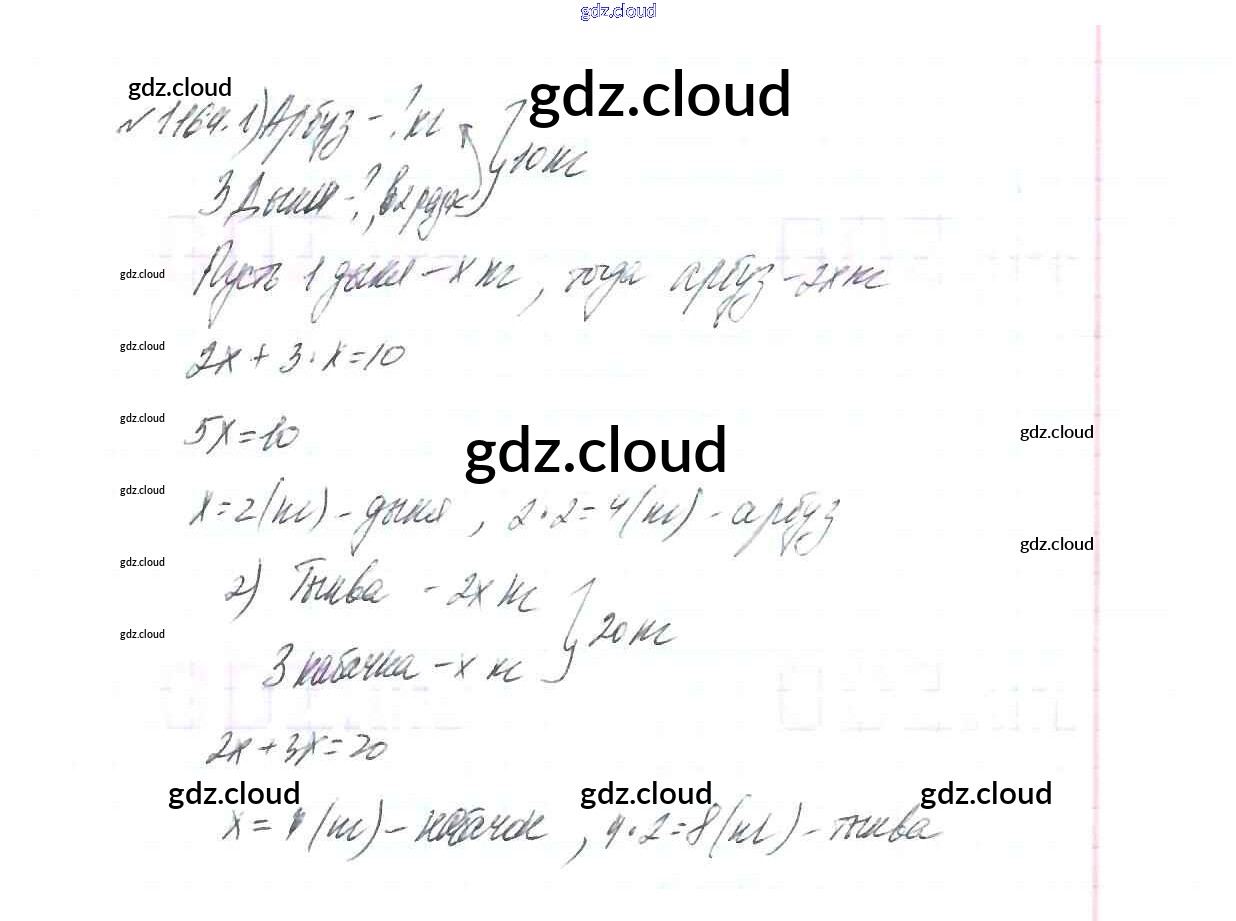 gdz.cloud
gdz.cloud
gdz.cloud
№1164. 1) Арбуз - ? кг
10 кг
3 Дыни - ?, в 2 р
gdz.cloud
Пусть 1 дыня - х кг, тогда арбуз - 2х кг
gdz.cloud
2х + 3 · х = 10
gdz.cloud
5х = 10
gdz.cloud
gdz.cloud
gdz.cloud
х = 2 (кг) - дыня, 2 · 2 = 4 (кг) - арбуз
gdz.cloud
gdz.cloud
2) Тыква - 2х кг
20 кг
gdz.cloud
3 кабачка - х кг
2х + 3х = 20
gdz.cloud
gdz.cloud
gdz.cloud
х = 4 (кг) - кабачок, 4 · 2 = 8 (кг) - тыква